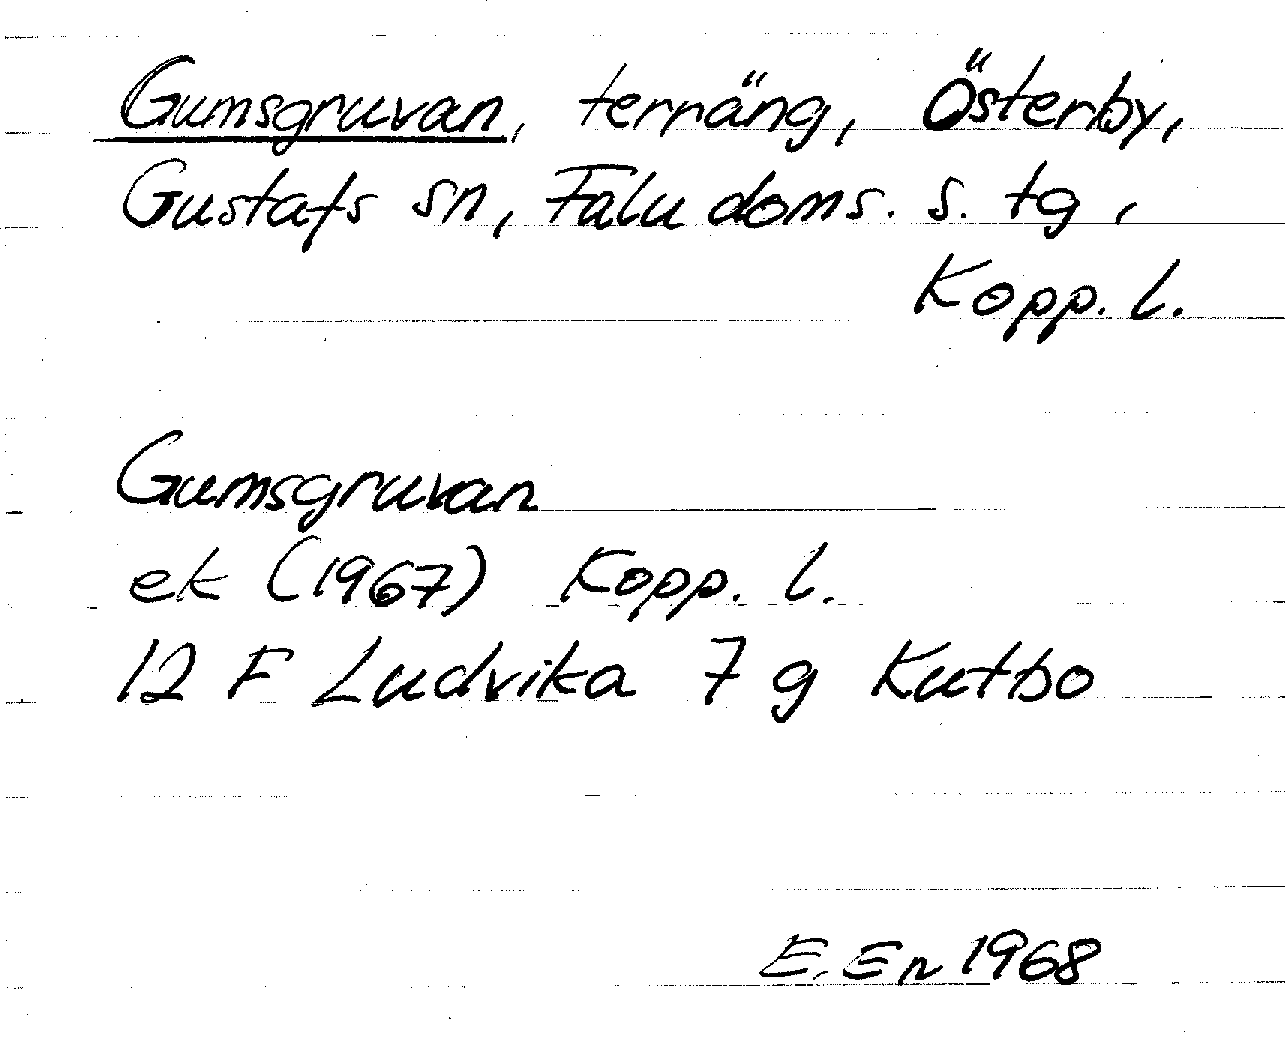 Gumsgruvan, terräng, Österby,
Gustafs sn, Falu doms. s. tg,
Kopp. l.
Gumsgruvan
ek (1967) Kopp. l.
12 F Ludvika 7 g Kutbo
E. En 1968